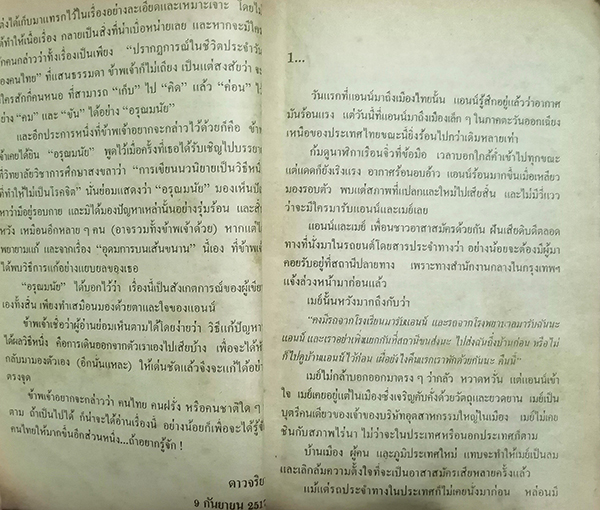 ต้งได้เก็บมาแทรกไว้ในเรื่องอย่างละเอียดและเหมาะเจาะ โดยไม่
ได้ทำให้เนื้อเรื่อง กลายเป็นสิ่งที่น่าเบื่อหน่ายเลย และหากจะมีใคร
ักคนกล่าวว่าทั้งเรื่องเป็นเพียง "ปรากฏการณ์ในชีวิตประจำวัน
องคนไทย" ที่แสนธรรมดา ข้าพเจ้าก็ไม่เถียง เป็นแต่สงสัยว่า จะ
ใครสักกี่คนหนอ ที่สามารถ "เก็บ" ไป "คิด" แล้ว "ค่อน" ไ
ย่าง "คม" และ "ขัน" ได้อย่าง "อรุณมนัย"
และอีกประการหนึ่งที่ข้าพเจ้าอยากจะกล่าวไว้ด้วยก็คือ ข้า
จ้าเคยได้ยิน "อรุณมนัย" พูดไว้เมื่อครั้งที่เธอได้รับเชิญไปบรรยา
ที่วิทยาลัยวิชาการศึกษาสงขลาว่า "การเขียนนวนิยายเป็นวิธีหนึ่
ที่ทำให้ไม่เป็นโรคจิต" นั่นย่อมแสดงว่า "อรุณมนัย" มองเห็นปัญ
หาว่ามีอยู่รอบกาย และมิได้มองปัญหาเหล่านั้นอย่างรุ่มร้อน และสิ้
หวัง เหมือนอีกหลาย ๆ คน (อาจรวมทั้งข้าพเจ้าด้วย) หากแต่ไ
พยายามแก้ และจากเรื่อง "อุดมการบนเส้นขนาน" นี้เอง ที่ข้าพเจ้
ได้พบวิธีการแก้อย่างแยบยลของเธอ
"อรุณมนัย" ได้บอกไว้ว่า เรื่องนี้เป็นสังเกตการณ์ของผู้เขีย
เองทั้งสิ้น เพียงทำเสมือนมองด้วยตาและใจของแอนน์
ข้าพเจ้าเชื่อว่าผู้อ่านย่อมเห็นตามได้โดยง่ายว่า วิธีแก้ปัญหา
ได้ผลวิธีหนึ่ง คือการเดินออกจากตัวเราเองไปเสียบ้าง เพื่อจะได้ห
กลับมามองตัวเอง (อีกนั่นแหละ) ให้เด่นชัดแล้วจึงจะแก้ได้อย่า
ตรงจุด
ข้าพเจ้าอยากจะกล่าวว่า คนไทย คนฝรั่ง หรือคนชาติใด ๆ
ตาม ถ้าเป็นไปได้ ก็น่าจะได้อ่านเรื่องนี้ อย่างน้อยก็เพื่อจะได้รู้จั
คนไทยให้มากขึ้นอีกส่วนหนึ่ง...ถ้าอยากรู้จัก !
ดาวจริย
9 กันยายน 251
1...
วันแรกที่แอนน์มาถึงเมืองไทยนั้น แอนน์รู้สึกอยู่แล้วว่าอากาศ
มันร้อนแรง แต่วันนี้ที่แอนน์มาถึงเมืองเล็ก ๆ ในภาคตะวันออกเฉียง
เหนือของประเทศไทยขณะนี้ยิ่งร้อนไปกว่าเดิมหลายเท่า
ก้มดูนาฬิกาเรือนจิ๋วที่ข้อมือ เวลาบอกใกล้ค่ำเข้าไปทุกขณะ
แต่แดดก็ยังเริงแรง อากาศร้อนอบอ้าว แอนน์ร้อนมากขึ้นเมื่อเหลียว
มองรอบตัว พบแต่สภาพที่แปลกและใหม่ไปเสียสิ้น และไม่มีวี่แวว
ว่าจะมีใครมารับแอนน์และเมย์เลย
แอนน์และเมย์ เพื่อนชาวอาสาสมัครด้วยกัน ฝันเสียดิบดีตลอด
ทางที่นั่งมาในรถยนต์โดยสารประจำทางว่า อย่างน้อยจะต้องมีผู้มา
คอยรับอยู่ที่สถานีปลายทาง เพราะทางสำนักงานกลางในกรุงเทพฯ
แจ้งล่วงหน้ามาก่อนแล้ว
เมย์นั้นหวังมากถึงกับว่า
"คงมีรถจากโรงเรียนมารับแอนน์ และรถจากโรงพยาบาลมารับฉันนะ
แอนน์ และเราอย่าเพิ่งแยกกันที่สถานีขนส่งนะ ไปส่งฉันถึงบ้านก่อน หรือไม่
ก็ไปดูบ้านแอนน์ไว้ก่อน เผื่อยังไงคืนแรกเราพักด้วยกันนะ คืนนี้"
เมย์ไม่กล้าบอกออกมาตรง ๆ ว่ากลัว หวาดหวั่น แต่แอนน์เข้า
ใจ เมย์เคยอยู่แต่ในเมืองซึ่งเจริญคับคั่งด้วยวัตถุและยวดยาน เมย์เป็น
บุตรีคนเดียวของเจ้าของบริษัทอุตสาหกรรมใหญ่ในเมือง เมย์ไม่เคย
ชินกับสภาพไร่นา ไม่ว่าจะในประเทศหรือนอกประเทศก็ตาม
บ้านเมือง ผู้คน และภูมิประเทศใหม่ แทบจะทำให้เมย์เป็นลม
และเลิกล้มความตั้งใจที่จะเป็นอาสาสมัครเสียหลายครั้งแล้ว
แม้แต่รถประจำทางในประเทศก็ไม่เคยนั่งมาก่อน หล่อนมี